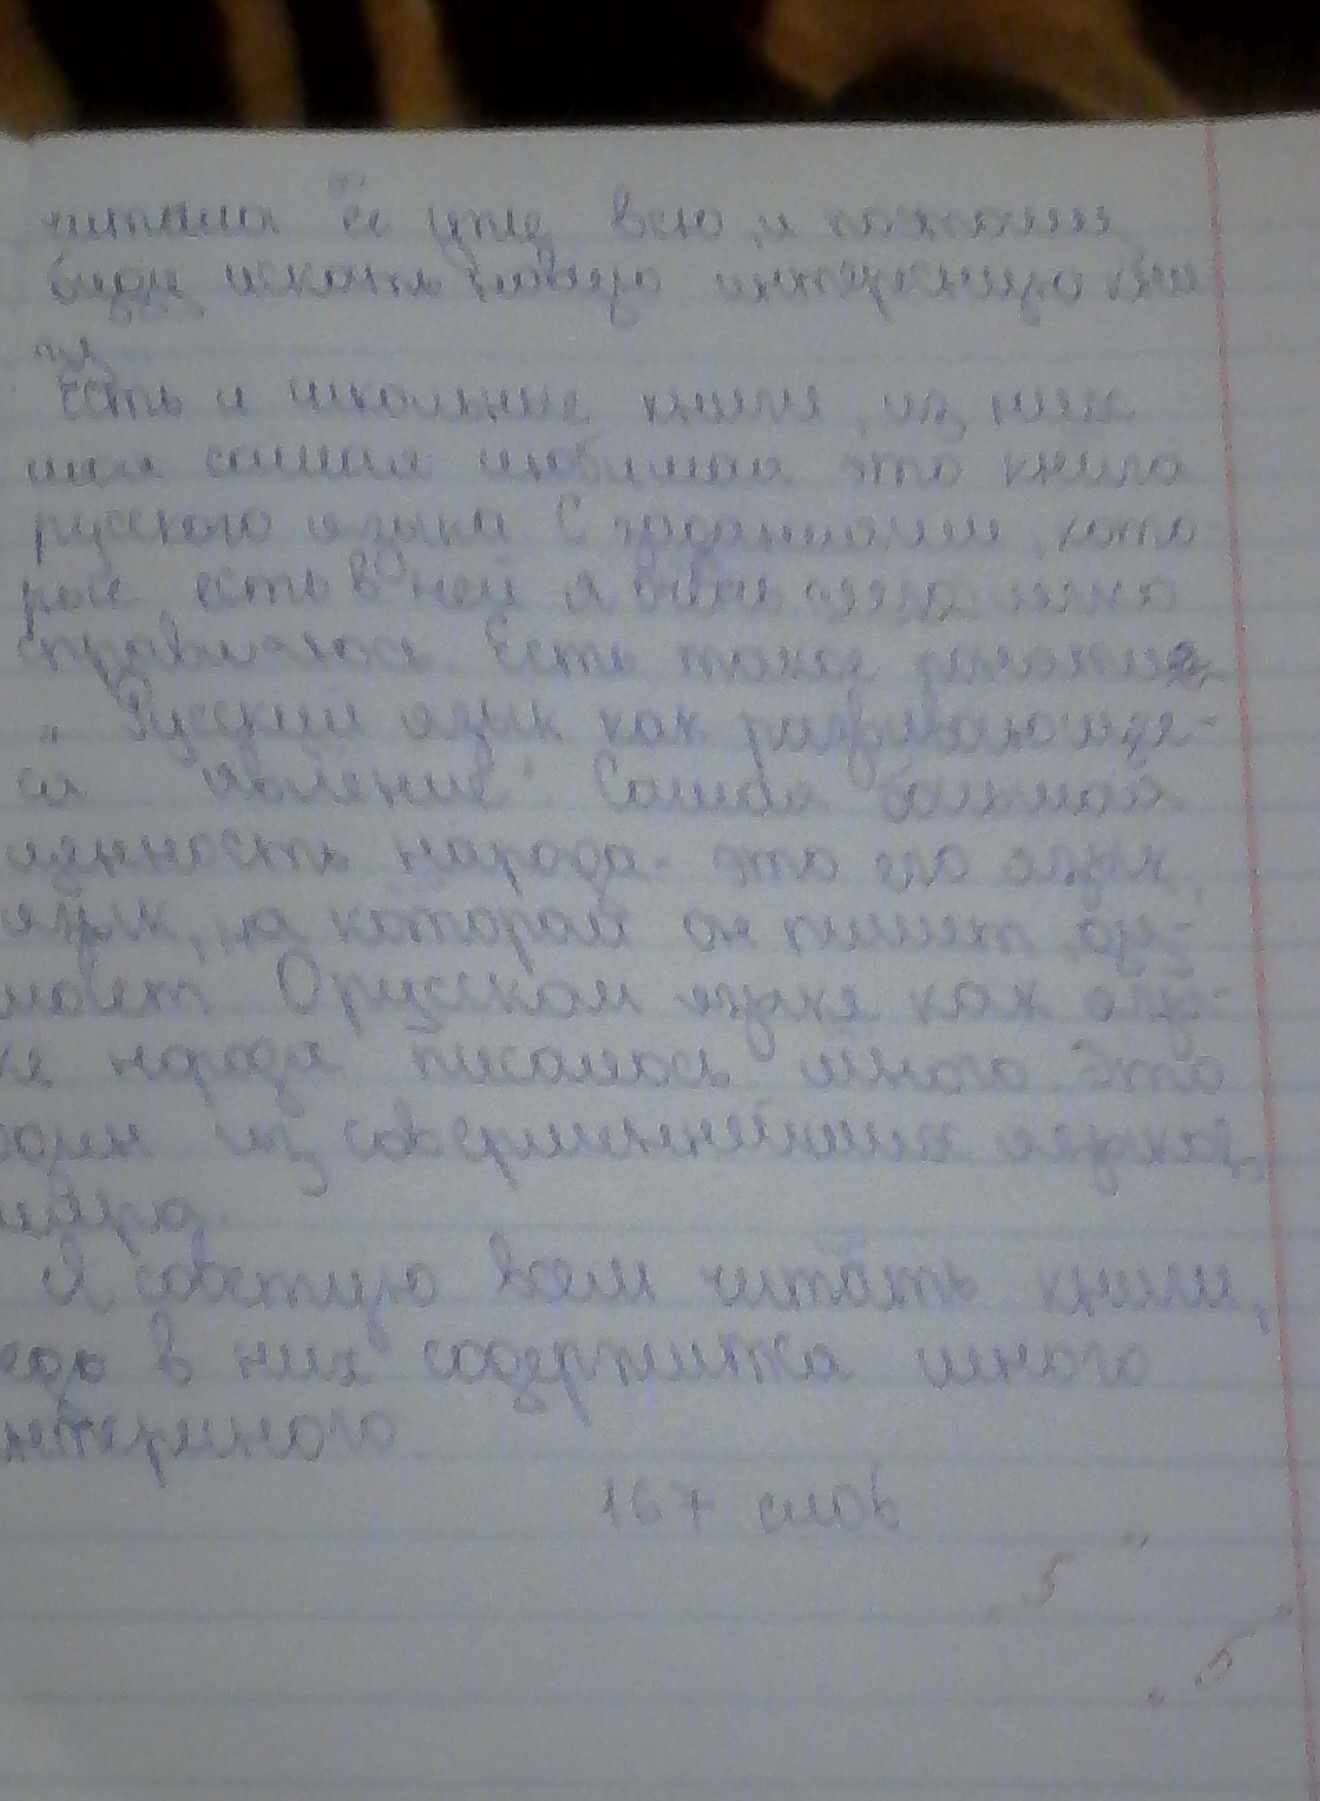 читала её уже всю, и поэтому
буду искать новую интересную кни
гу
Есть и школьные книги, из них
моя самая любимая это книга
русского языка С заданиями, кото-
рые есть в ней я очень легко
справляюсь. Есть такое
„ Русский язык как развивающее-
ся явление". Самая большая
ценность народа - это его язык,
язык, на котором он пишет, ду-
мает. О русском языке как язы-
ке народа писалось много. Это
один из совершеннейших языков
мира.
Я советую всем читать книги,
едь в них содержится много
нтересного
167 слов
„5"
„5"